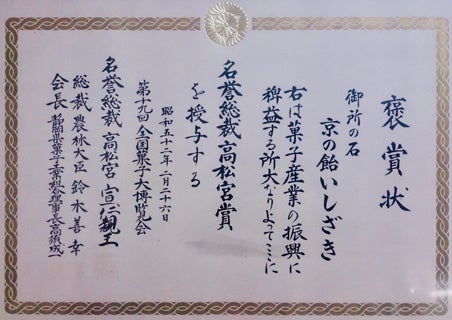 褒賞状
御所の石
京の飴いしざき
右は菓子産業の振興に
稗益する所大なりよってここに
名誉総裁高松宮賞
を授与する
昭和五十二年二月二十六日
第十九回全国菓子大博覧会
名誉総裁 高松宮宣仁親王
総裁 農林大臣 鈴木善幸
会長 静岡県菓子工業組合理事長 高須成一